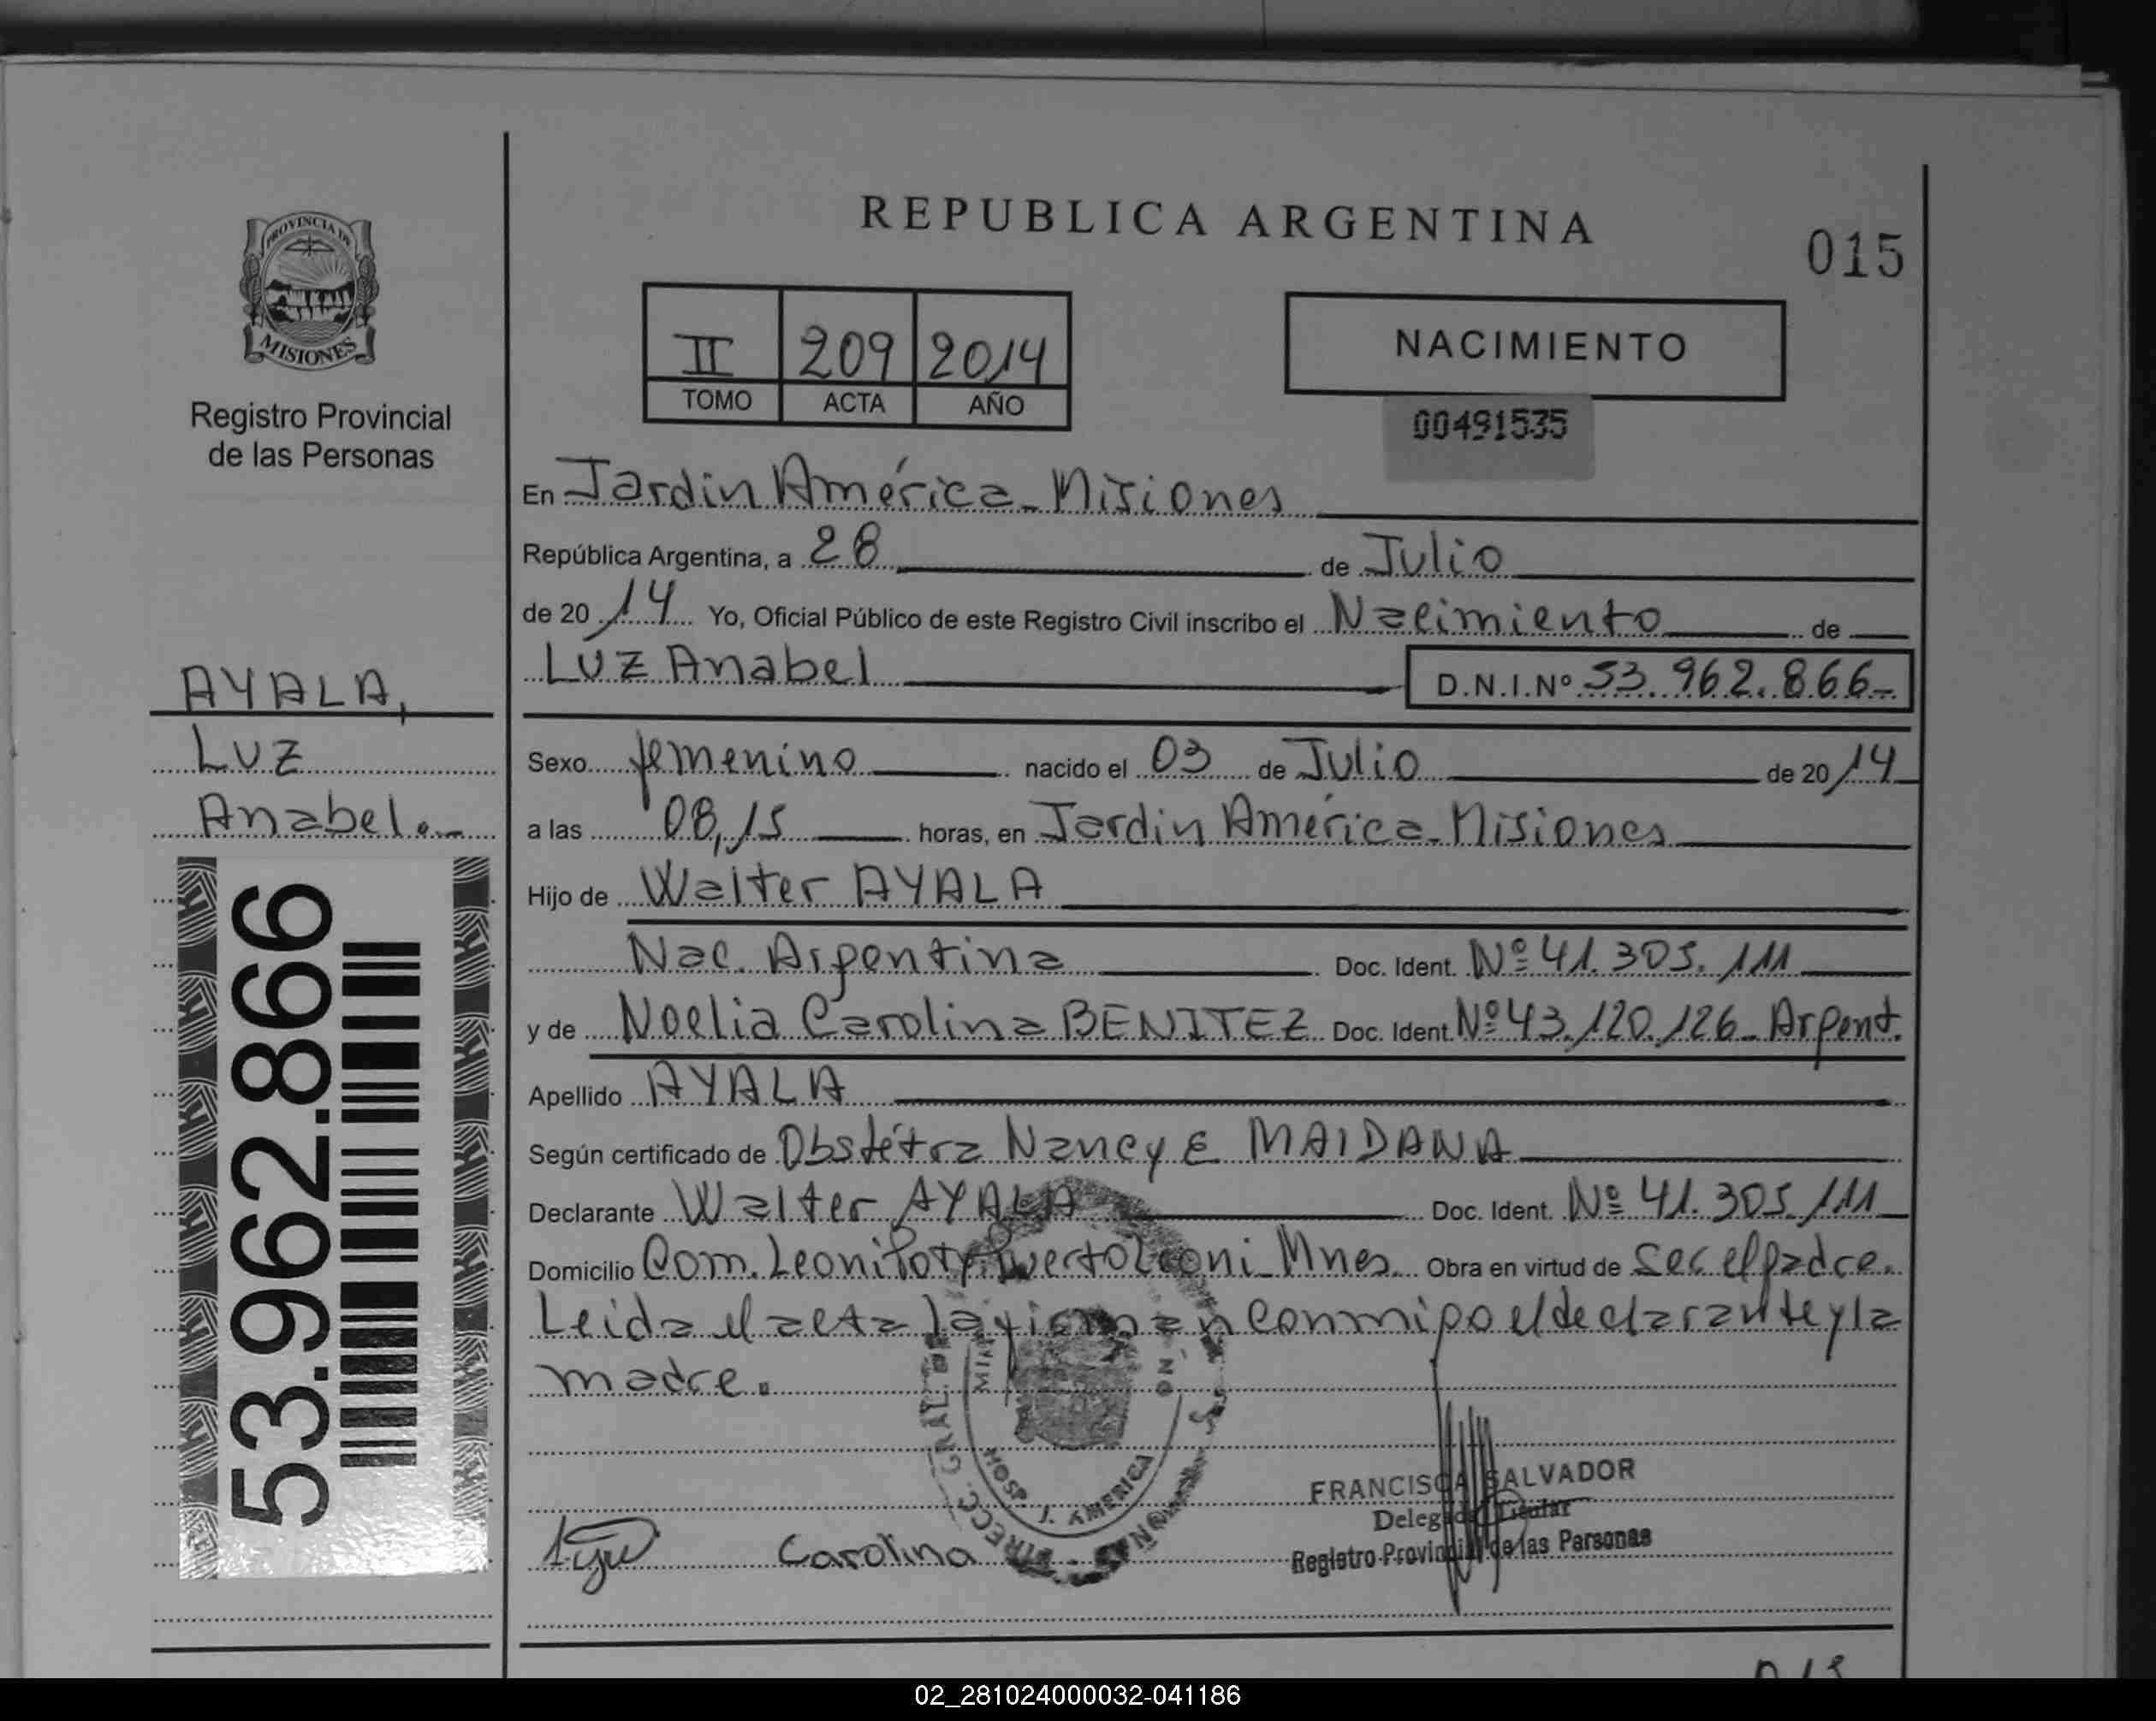 REPUBLICA ARGENTINA
015
PROVINCIA DE
MISIONES
Registro Provincial
de las Personas
II 209 2014
TOMO ACTA AÑO
NACIMIENTO
00491535
En Jardin América - Misiones
República Argentina, a 28 de Julio
de 2014 Yo, Oficial Público de este Registro Civil inscribo el Nacimiento de
Luz Anabel D.N.I.Nº 53.962.866-
AYALA,
Luz
Anabel.-
53.962.866
Sexo femenino nacido el 03 de Julio de 2014
a las 08,15 horas, en Jardin América - Misiones
Hijo de Walter AYALA
Nac. Argentina Doc. Ident. Nº 41.305.111
y de Noelia Carolina BENITEZ Doc. Ident. Nº 43.120.126 - Argent.
Apellido AYALA
Según certificado de Obstétra Nancy E MAIDANA
Declarante Walter AYALA Doc. Ident. Nº 41.305.111
Domicilio Com. Leoni Poty Puerto Leoni - Mnes. Obra en virtud de ser el padre.
Leida el acta la firman conmigo el declarante y la
madre.
DIRECC. GRAL. DE
J. AMERICA
Carolina
FRANCISCA SALVADOR
Delegada Titular
Registro Provincial de las Personas
02_281024000032-041186